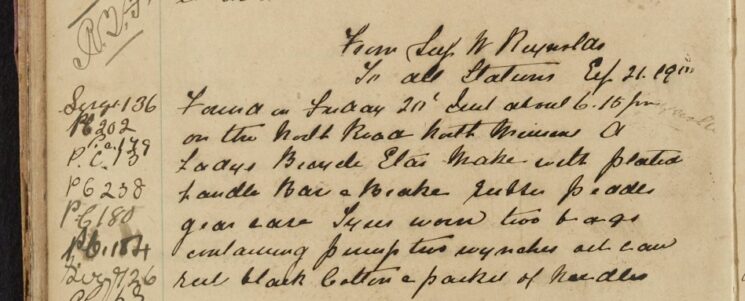 From Sup W Reynolds
To all Stations 21.
Sergt 136 Found on Friday 20t Inst about 6.15 pm
PC 202 on the North Road North Mimms A
P.C. 13 Ladys Bicycle Make with plated
PC 238 handle Bar & Brake rubber peddles
PC 180 gear case Tyres worn two bags
PC 184 containing pump two wrenches oil can
726 reel black Cotton & packet of Needles